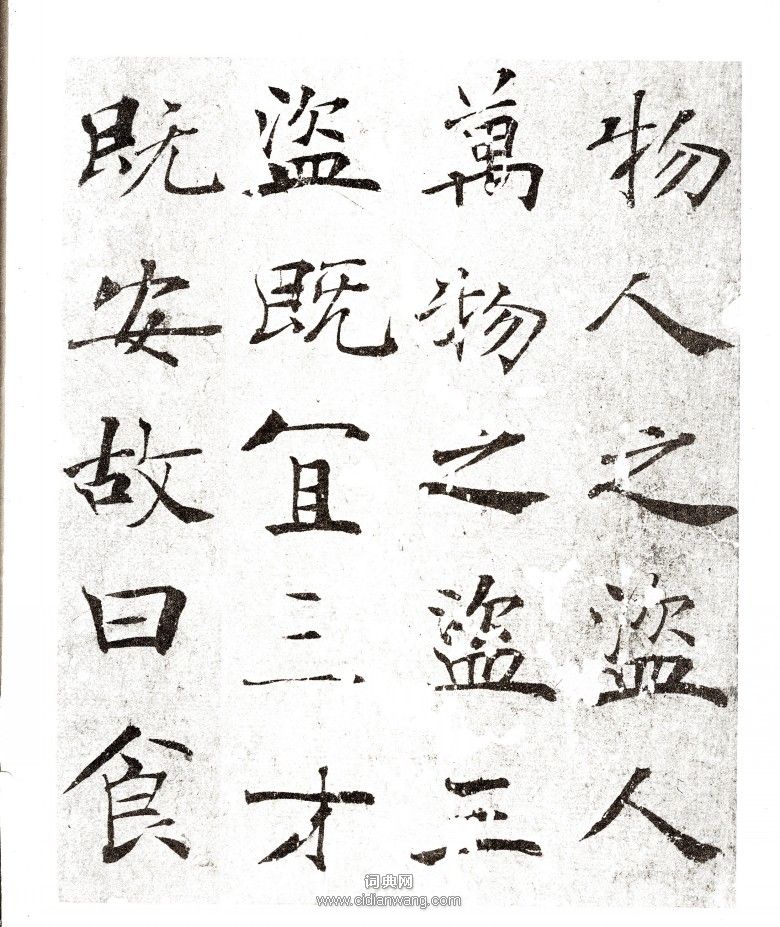 物人之盜人
萬物之盜三
盜既宜三才
既安故曰食
词典网
www.cidianwang.com